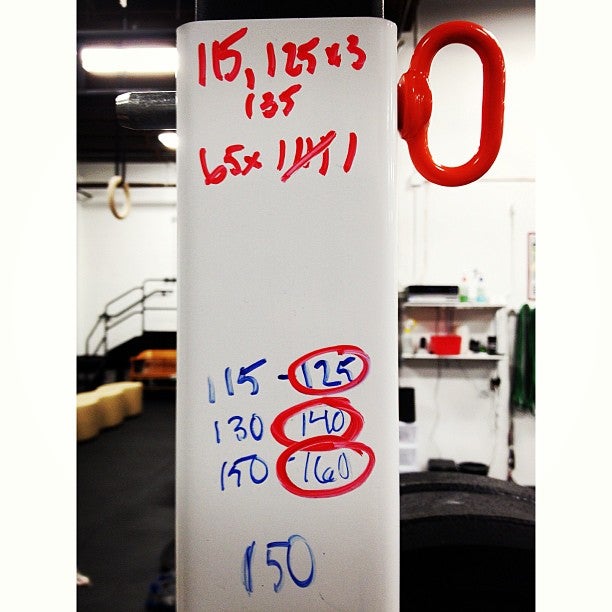 115, 125x3
135
65x 𝍸 I
115 - 125
130 140
150 160
150